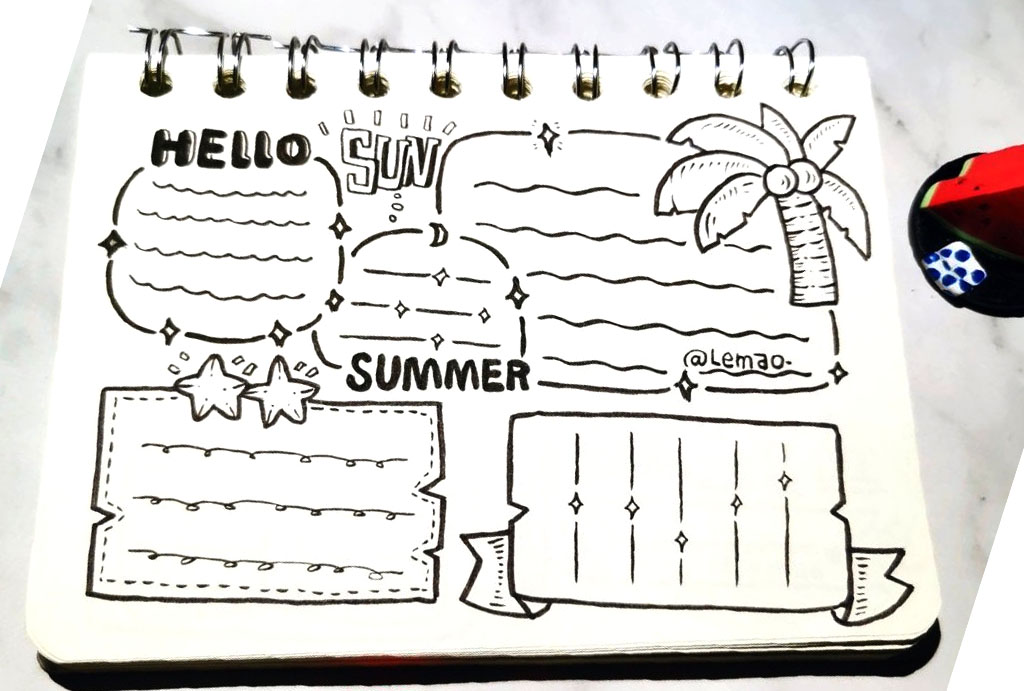 HELLO
SUN
SUMMER
@Lemao-